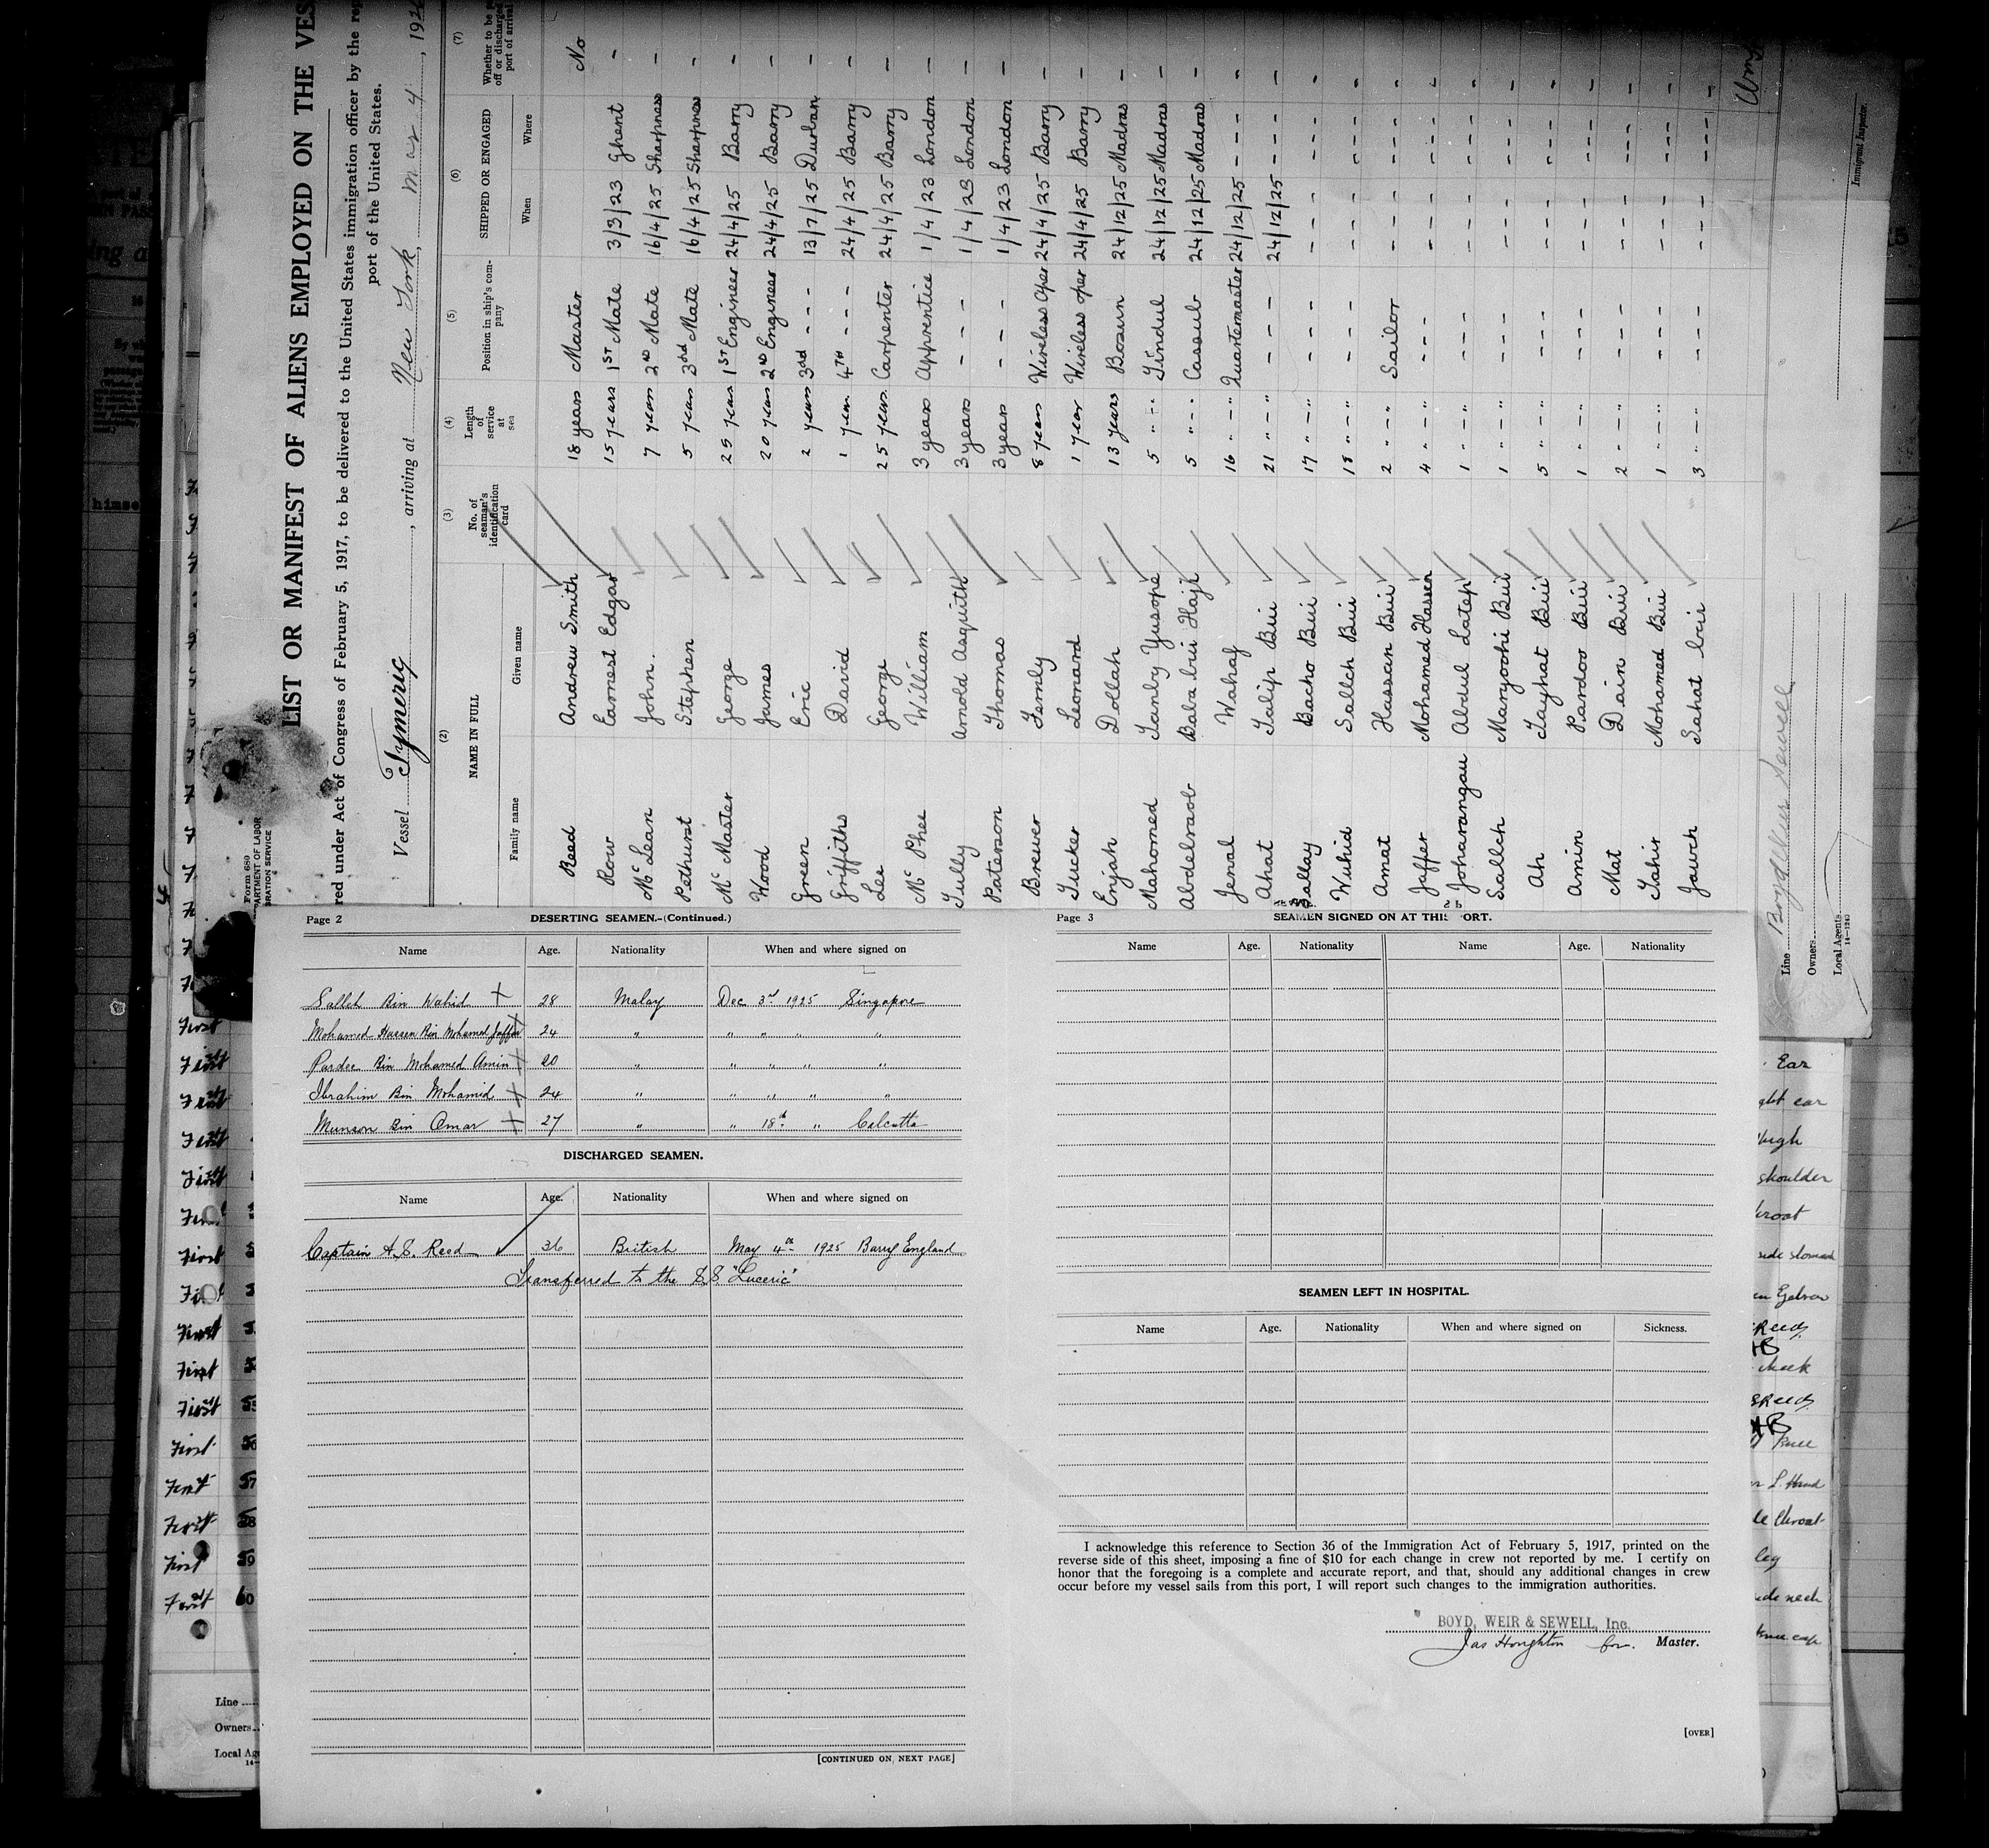 Form 680
DEPARTMENT OF LABOR
IMMIGRATION SERVICE
LIST OR MANIFEST OF ALIENS EMPLOYED ON THE VES
red under Act of Congress of February 5, 1917, to be delivered to the United States immigration officer by the rep
port of the United States.
Vessel Tymeric, arriving at New York, Mar 4, 1926
(2) (3) (4) (5) (6) (7)
NAME IN FULL
Family name Given name
No. of seaman's identification card
Length of service at sea
Position in ship's company
SHIPPED OR ENGAGED
When Where
Whether to be
off or discharged
port of arrival
Reed Andrew Smith 18 years Master No
Row Earnest Edgar 15 years 1ST Mate 3/3/23 Ghent -
Mc Lean John. 7 years 2ND Mate 16/4/25 Sharpness -
Pethurst Stephen 5 years 3rd Mate 16/4/25 Sharpness -
Mc Master George 25 years 1ST Engineer 24/4/25 Barry -
Wood James 20 years 2ND Engineer 24/4/25 Barry -
Green Eric 2 years 3rd - - - 13/7/25 Durban -
Griffiths David 1 year 4TH - - - 24/4/25 Barry -
Lee George 25 years Carpenter 24/4/25 Barry -
Mc Phee William 3 years Apprentice 1/4/23 London -
Tully Arnold Asquith 3 years - - - 1/4/23 London -
Paterson Thomas 3 years - - - 1/4/23 London -
Brewer Fernly 8 years Wireless Oper 24/4/25 Barry -
Tucker Leonard 1 year Wireless Oper 24/4/25 Barry -
Enjah Dollah 13 years Bosun 24/12/25 Madras -
Mahomed Tamby Yusope 5 " - " Tindul 24/12/25 Madras -
Abdelraob Baba bin Haji 5 " - " Cassub 24/12/25 Madras -
Jenal Wahaf 16 " - " Quartermaster 24/12/25 - - - -
Ahat Talip Bin 21 " - " - - - 24/12/25 - - - -
Sallay Bacho Bin 17 " - " - - - - - - - - - -
Wuhid Salleh Bin 18 " - " - - - - - - - - - -
Amat Hassan Bin 2 " - " Sailor - - - - - - -
Jaffer Mohamed Hassen 4 " - " - - - - - - - - - -
Joharangau Abdul Latep 1 " - " - - - - - - - - - -
Salleh Maryoohi Bin 1 " - " - - - - - - - - - -
Ah Tayhat Bin 5 " - " - - - - - - - - - -
Amin Pardoo Bin 1 " - " - - - - - - - - - -
Mat Dain Bin 2 " - " - - - - - - - - - -
Tahir Mohamed Bin 1 " - " - - - - - - - - - -
Jauch Sahat bin 3 " - " - - - - - - - - - -
Immigrant Inspector.
Line Boyd Weir Sewell
Owners
Local Agents
14-1240
Page 2 DESERTING SEAMEN.-(Continued.)
Name Age. Nationality When and where signed on
Salleh Bin Wahid 28 Malay Dec 3rd 1925 Singapore
Mohamed Hassen Bin Mohamed Jaffer 24 " " " " "
Pardee Bin Mohamed Amin 20 " " " " "
Ibrahim Bin Mohamid 24 " " " " "
Munson Bin Omar 27 " " 18th " Calcutta
DISCHARGED SEAMEN.
Name Age. Nationality When and where signed on
Captain A.S. Reed 36 British May 4th 1925 Barry England
Transferred to the S.S "Luceric"
[CONTINUED ON NEXT PAGE]
Page 3 SEAMEN SIGNED ON AT THIS PORT.
Name Age. Nationality Name Age. Nationality
SEAMEN LEFT IN HOSPITAL.
Name Age. Nationality When and where signed on Sickness.
I acknowledge this reference to Section 36 of the Immigration Act of February 5, 1917, printed on the
reverse side of this sheet, imposing a fine of $10 for each change in crew not reported by me. I certify on
honor that the foregoing is a complete and accurate report, and that, should any additional changes in crew
occur before my vessel sails from this port, I will report such changes to the immigration authorities.
BOYD, WEIR & SEWELL, Inc.
Jas Houghton for. Master.
[OVER]
Ear
ght ear
thigh
shoulder
throat
side stomach
cheek
Knee
L. Hand
le throat
leg
side neck
knee cap
First
First
First
First
First
First
First
First
First
First
First
First
First 57
First 58
First 59
First 60
Line
Owners
Local Age